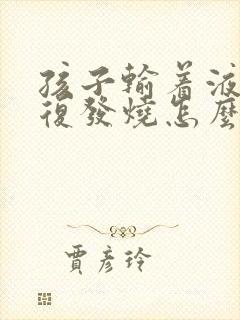 孩子輸着液
復發燒怎麼
賈彥玲